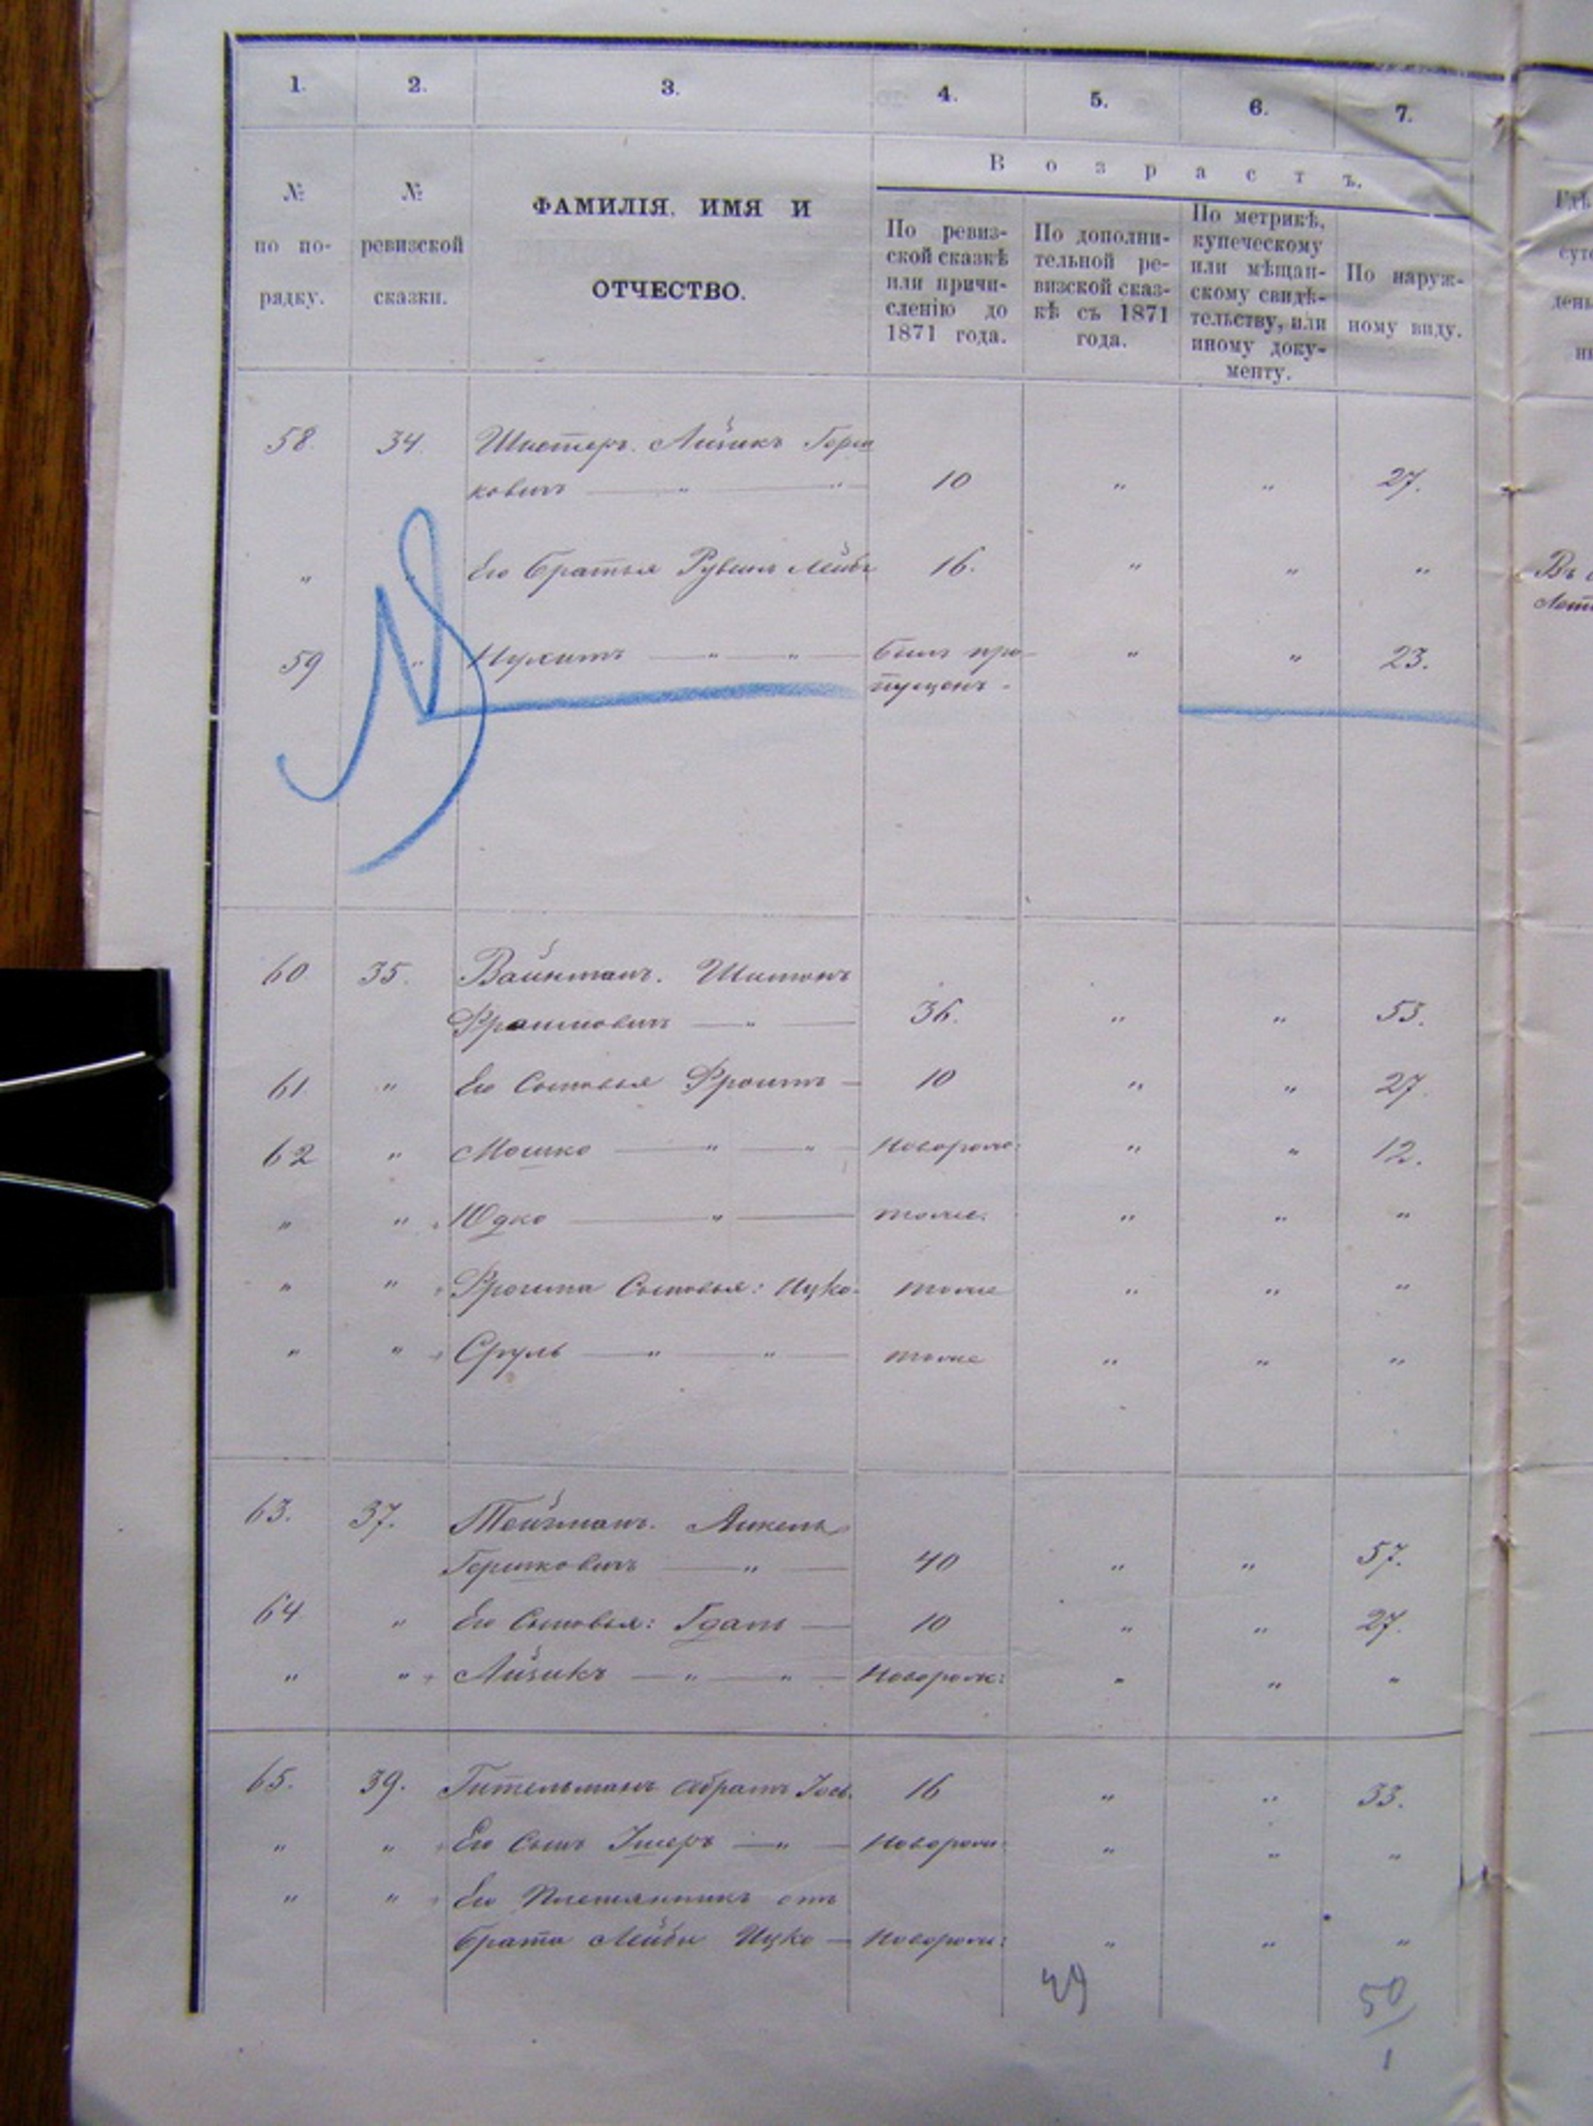 1. 2. 3. 4. 5. 6. 7.
№ по по-рядку.
№ ревизской сказки.
ФАМИЛІЯ, ИМЯ И
ОТЧЕСТВО.
В о з р а с т ъ.
По ревиз-
ской сказкѣ
или причи-
сленію до
1871 года.
По дополни-
тельной ре-
визской сказ-
кѣ съ 1871
года.
По метрикѣ,
купеческому
или мѣщан-
скому свидѣ-
тельству, или
иному доку-
менту.
По наруж-
ному виду.
58. 34. Шистеръ. Айзикъ Герш
ковичъ — " — " — 10 " " 27.
" " Его братья Рувинъ Лейбъ 16. " " "
59 " Нухимъ — " — " — былъ про- " " 23.
пущенъ -
60 35. Вайнманъ. Шимонъ
Фроимовичъ — " — 36. " " 53.
61 " Его Сыновья Фроимъ — 10 " " 27
62 " Мошко — " — " — Новорож: " " 12.
" " Юдко — " — тоже. " " "
" " Фроима Сыновья: Ицко- тоже " " "
" " Сруль — " — " — тоже " " "
63. 37. Тейтманъ. Янкель
Гершковичъ — " — 40 " " 57.
64 " Его Сыновья: Гданъ — 10 " " 27.
" " Айзикъ — " — " — Новорож: " " "
65. 39. Гительманъ Абрамъ Іось. 16 " " 33.
" " Его Сынъ Ушеръ — " — Новорож: " " "
" " Его Племянникъ отъ
брата Лейбы Ицко — Новорож: " " "
49
50
1
Въ